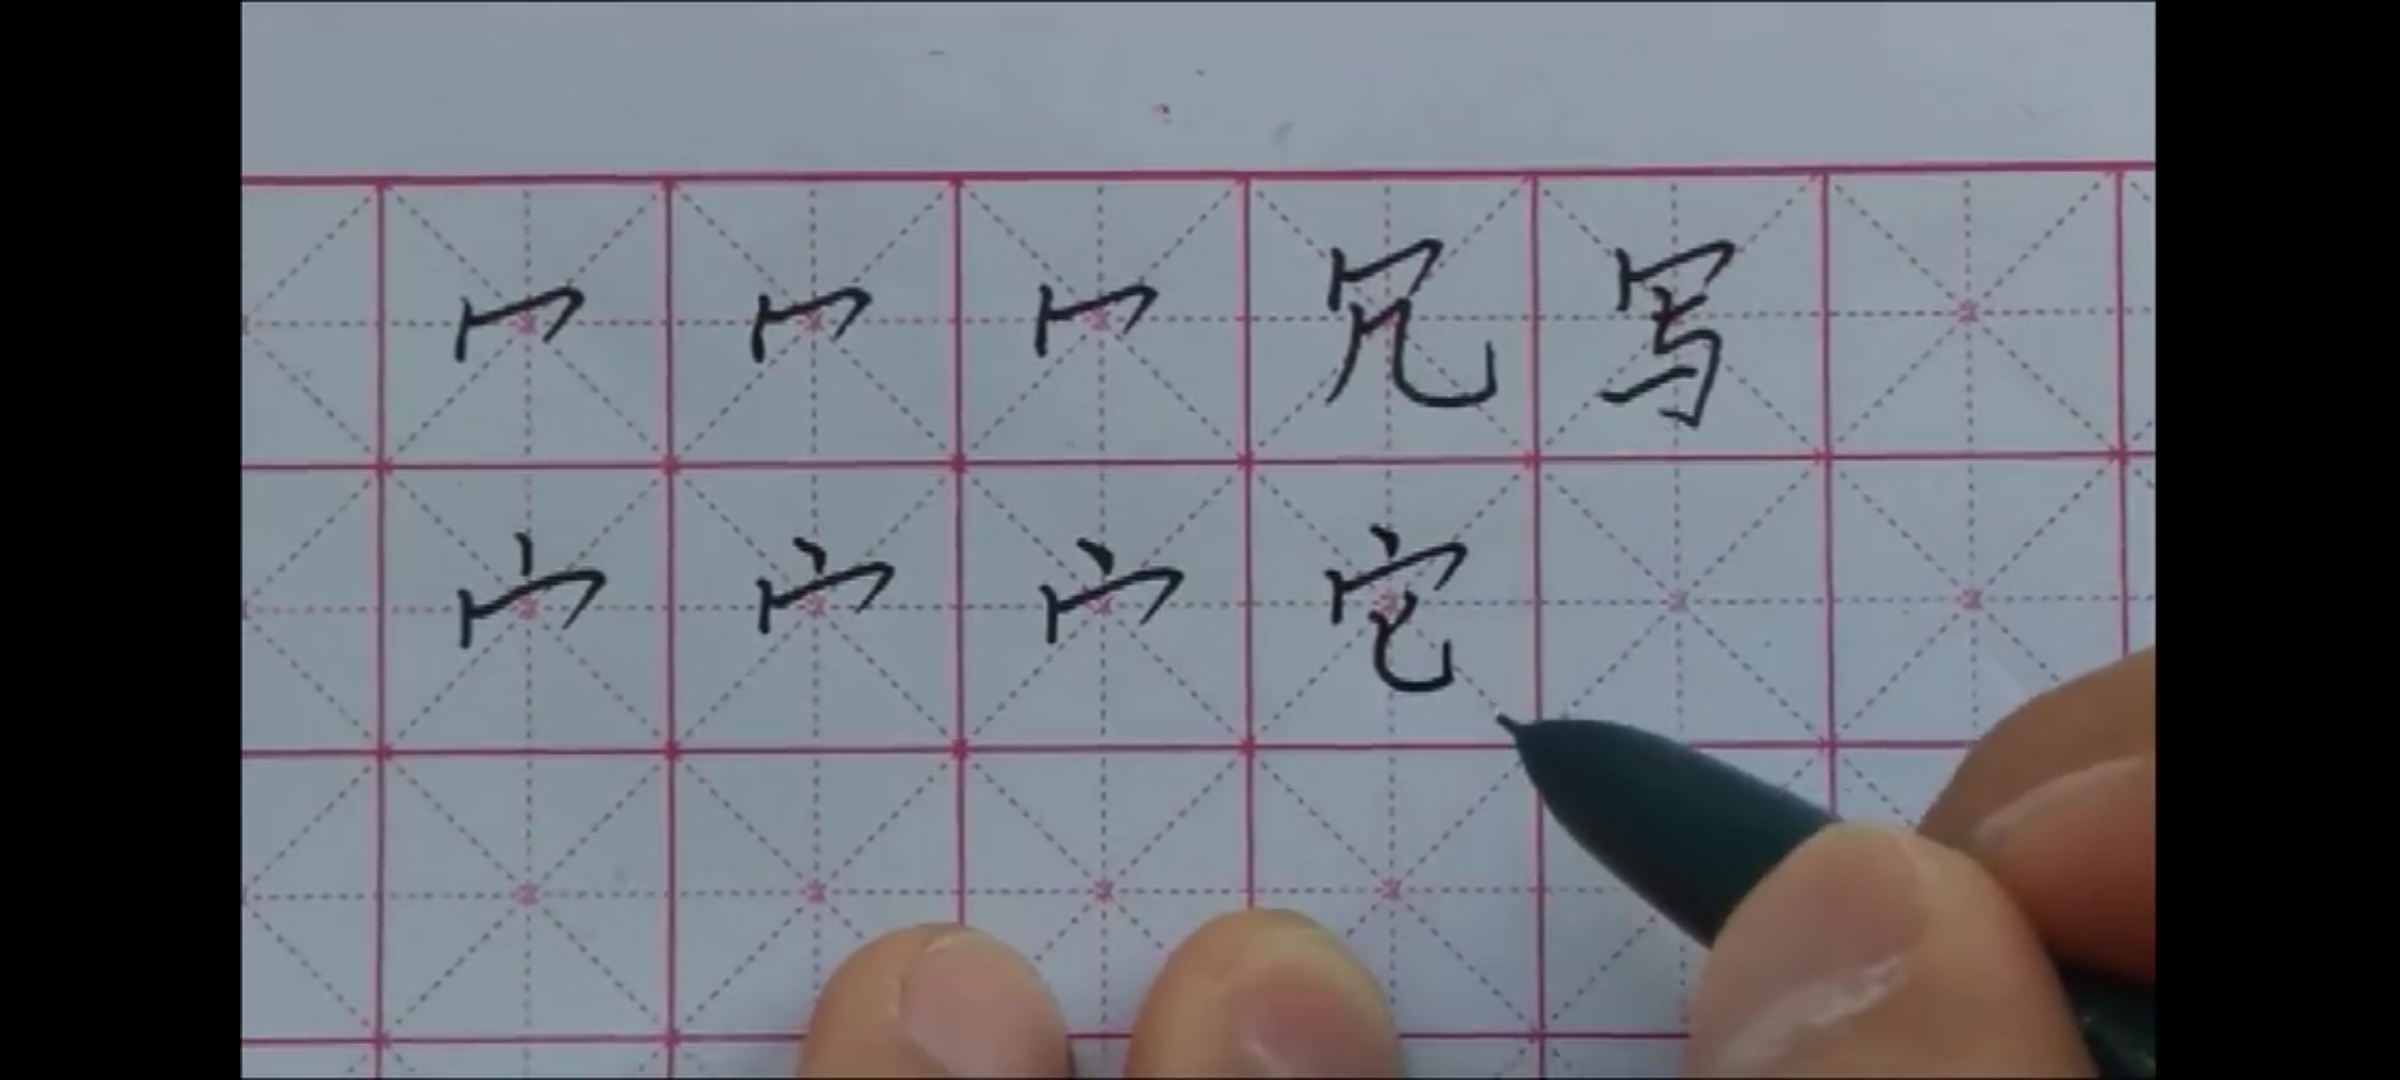 冖冖冖冗写
宀宀宀它